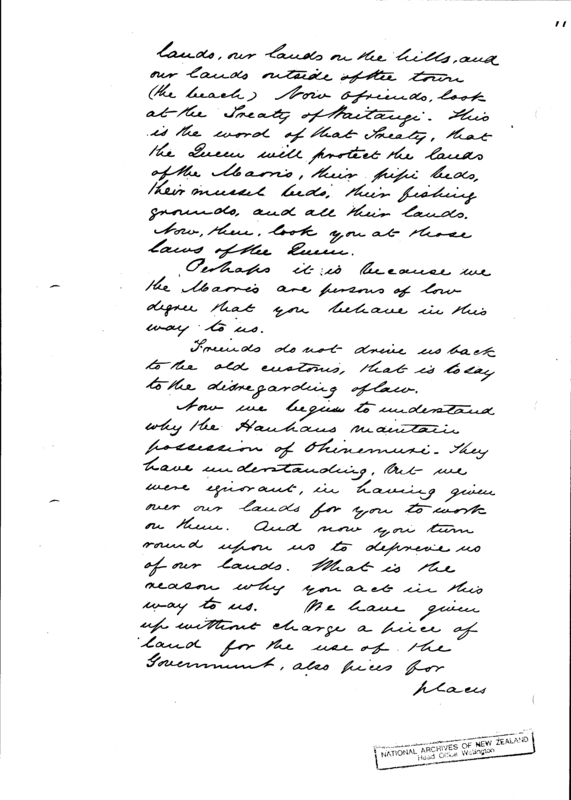 11
lands, our lands on the hills, and
our lands outside of the town
(the beach) Now o friends, look
at the Treaty of Waitangi. This
is the word of that Treaty, that
the Queen will protect the lands
of the Maoris, their pipi beds,
their mussel beds, their fishing
grounds, and all their lands.
Now, then, look you at those
laws of the Queen.
Perhaps it is because we
the Maoris are persons of low
degree that you behave in this
way to us.
Friends do not drive us back
to the old customs, that is to say
to the disregarding of law.
Now we begin to understand
why the Hauhaus maintain
possession of Ohinemuri. They
have understanding, but we
were ignorant, in having given
over our lands for you to work
on them. And now you turn
round upon us to deprive us
of our lands. What is the
reason why you act in this
way to us. We have given
up without charge a piece of
land for the use of the
Government, also pieces for
places
NATIONAL ARCHIVES OF NEW ZEALAND
Head Office Wellington